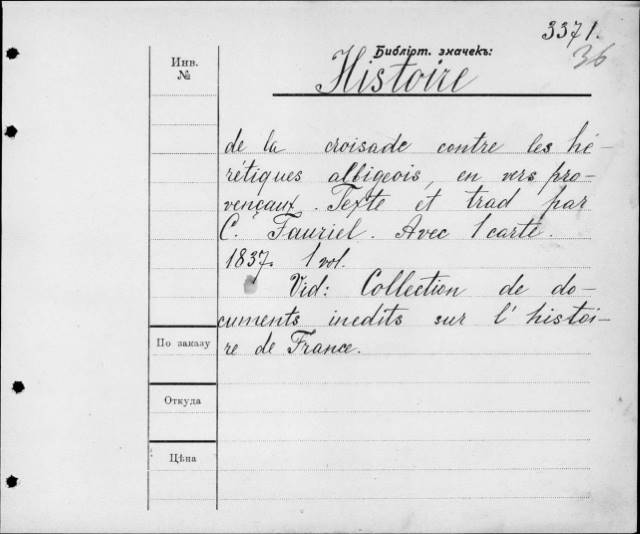 3371.
36
Библіот. значекъ:
Инв.
№
Histoire
de la croisade contre les hé-
rétiques albigeois, en vers pro-
vençaux. Texte et trad par
C. Fauriel. Avec 1 carte.
1837. 1 vol.
Vid: Collection de do-
cuments inedits sur l'histoi-
re de France.
По заказу
Откуда
Цѣна